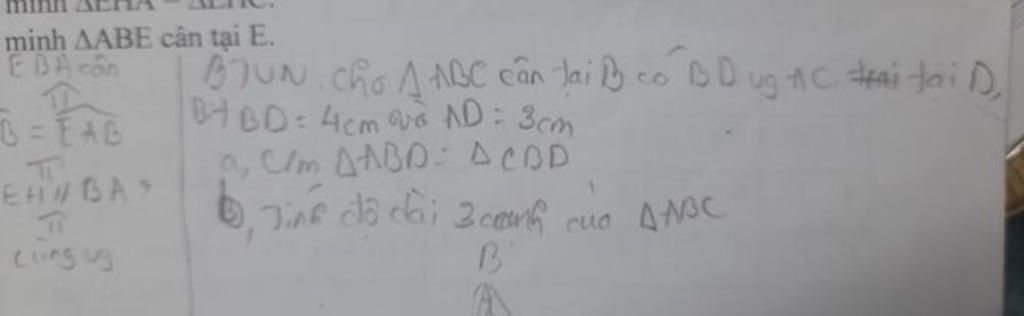 minh ΔABE cân tại E.
EBA cân
BTVN. Cho Δ ABC cân tại B có BD vg AC tại D,
B = EAB
BD = 4cm và AD = 3cm
a, C/m ΔABD = ΔCBD
EH // BA
b, Tính độ dài 3 cạnh của ΔABC
cùng vg
B